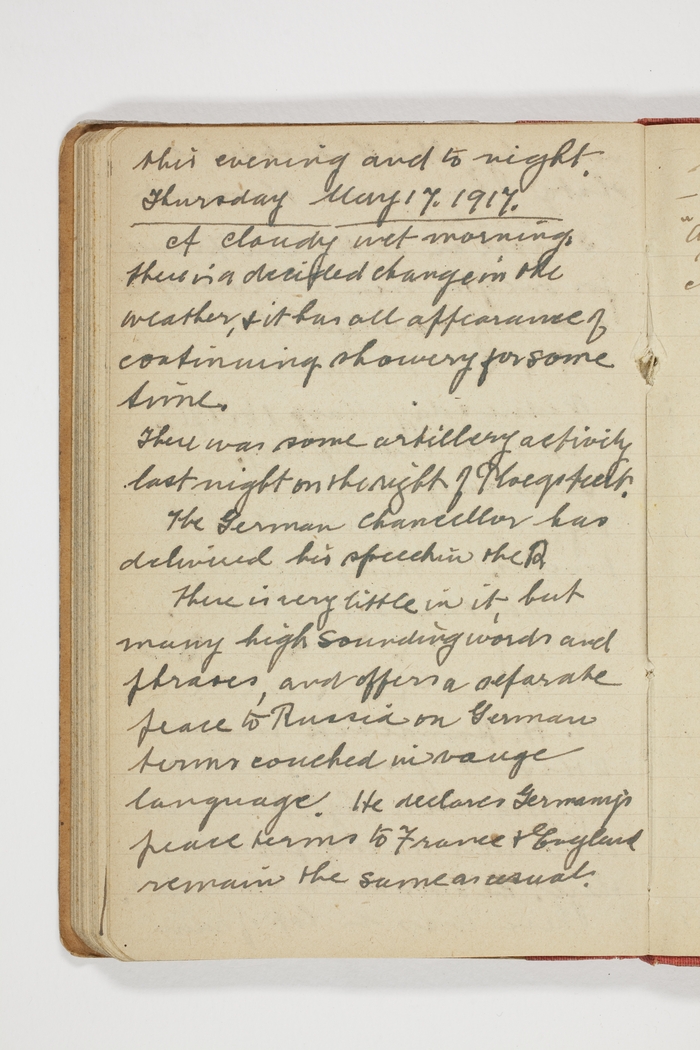 this evening and to night.
Thursday May 17. 1917.
A cloudy wet morning.
there is a decided change in the
weather, & it has all appearance of
continuing showery for some
time.
There was some artillery activity
last night on the right of Ploegsteert.
The German Chancellor has
delivered his speech in the R
There is very little in it, but
many high sounding words and
phrases, and offers a separate
peace to Russia on German
terms couched in vauge
language. He declares Germany's
peace terms to France & England
remain the same as usual.